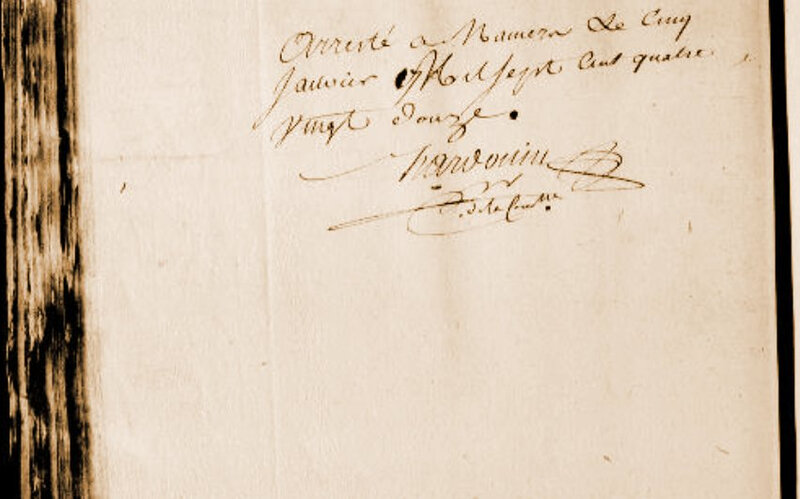 Arresté a Mamers Le Cinq
Janvier Mil Sept Cent quatre
vingt douze.
hardouin